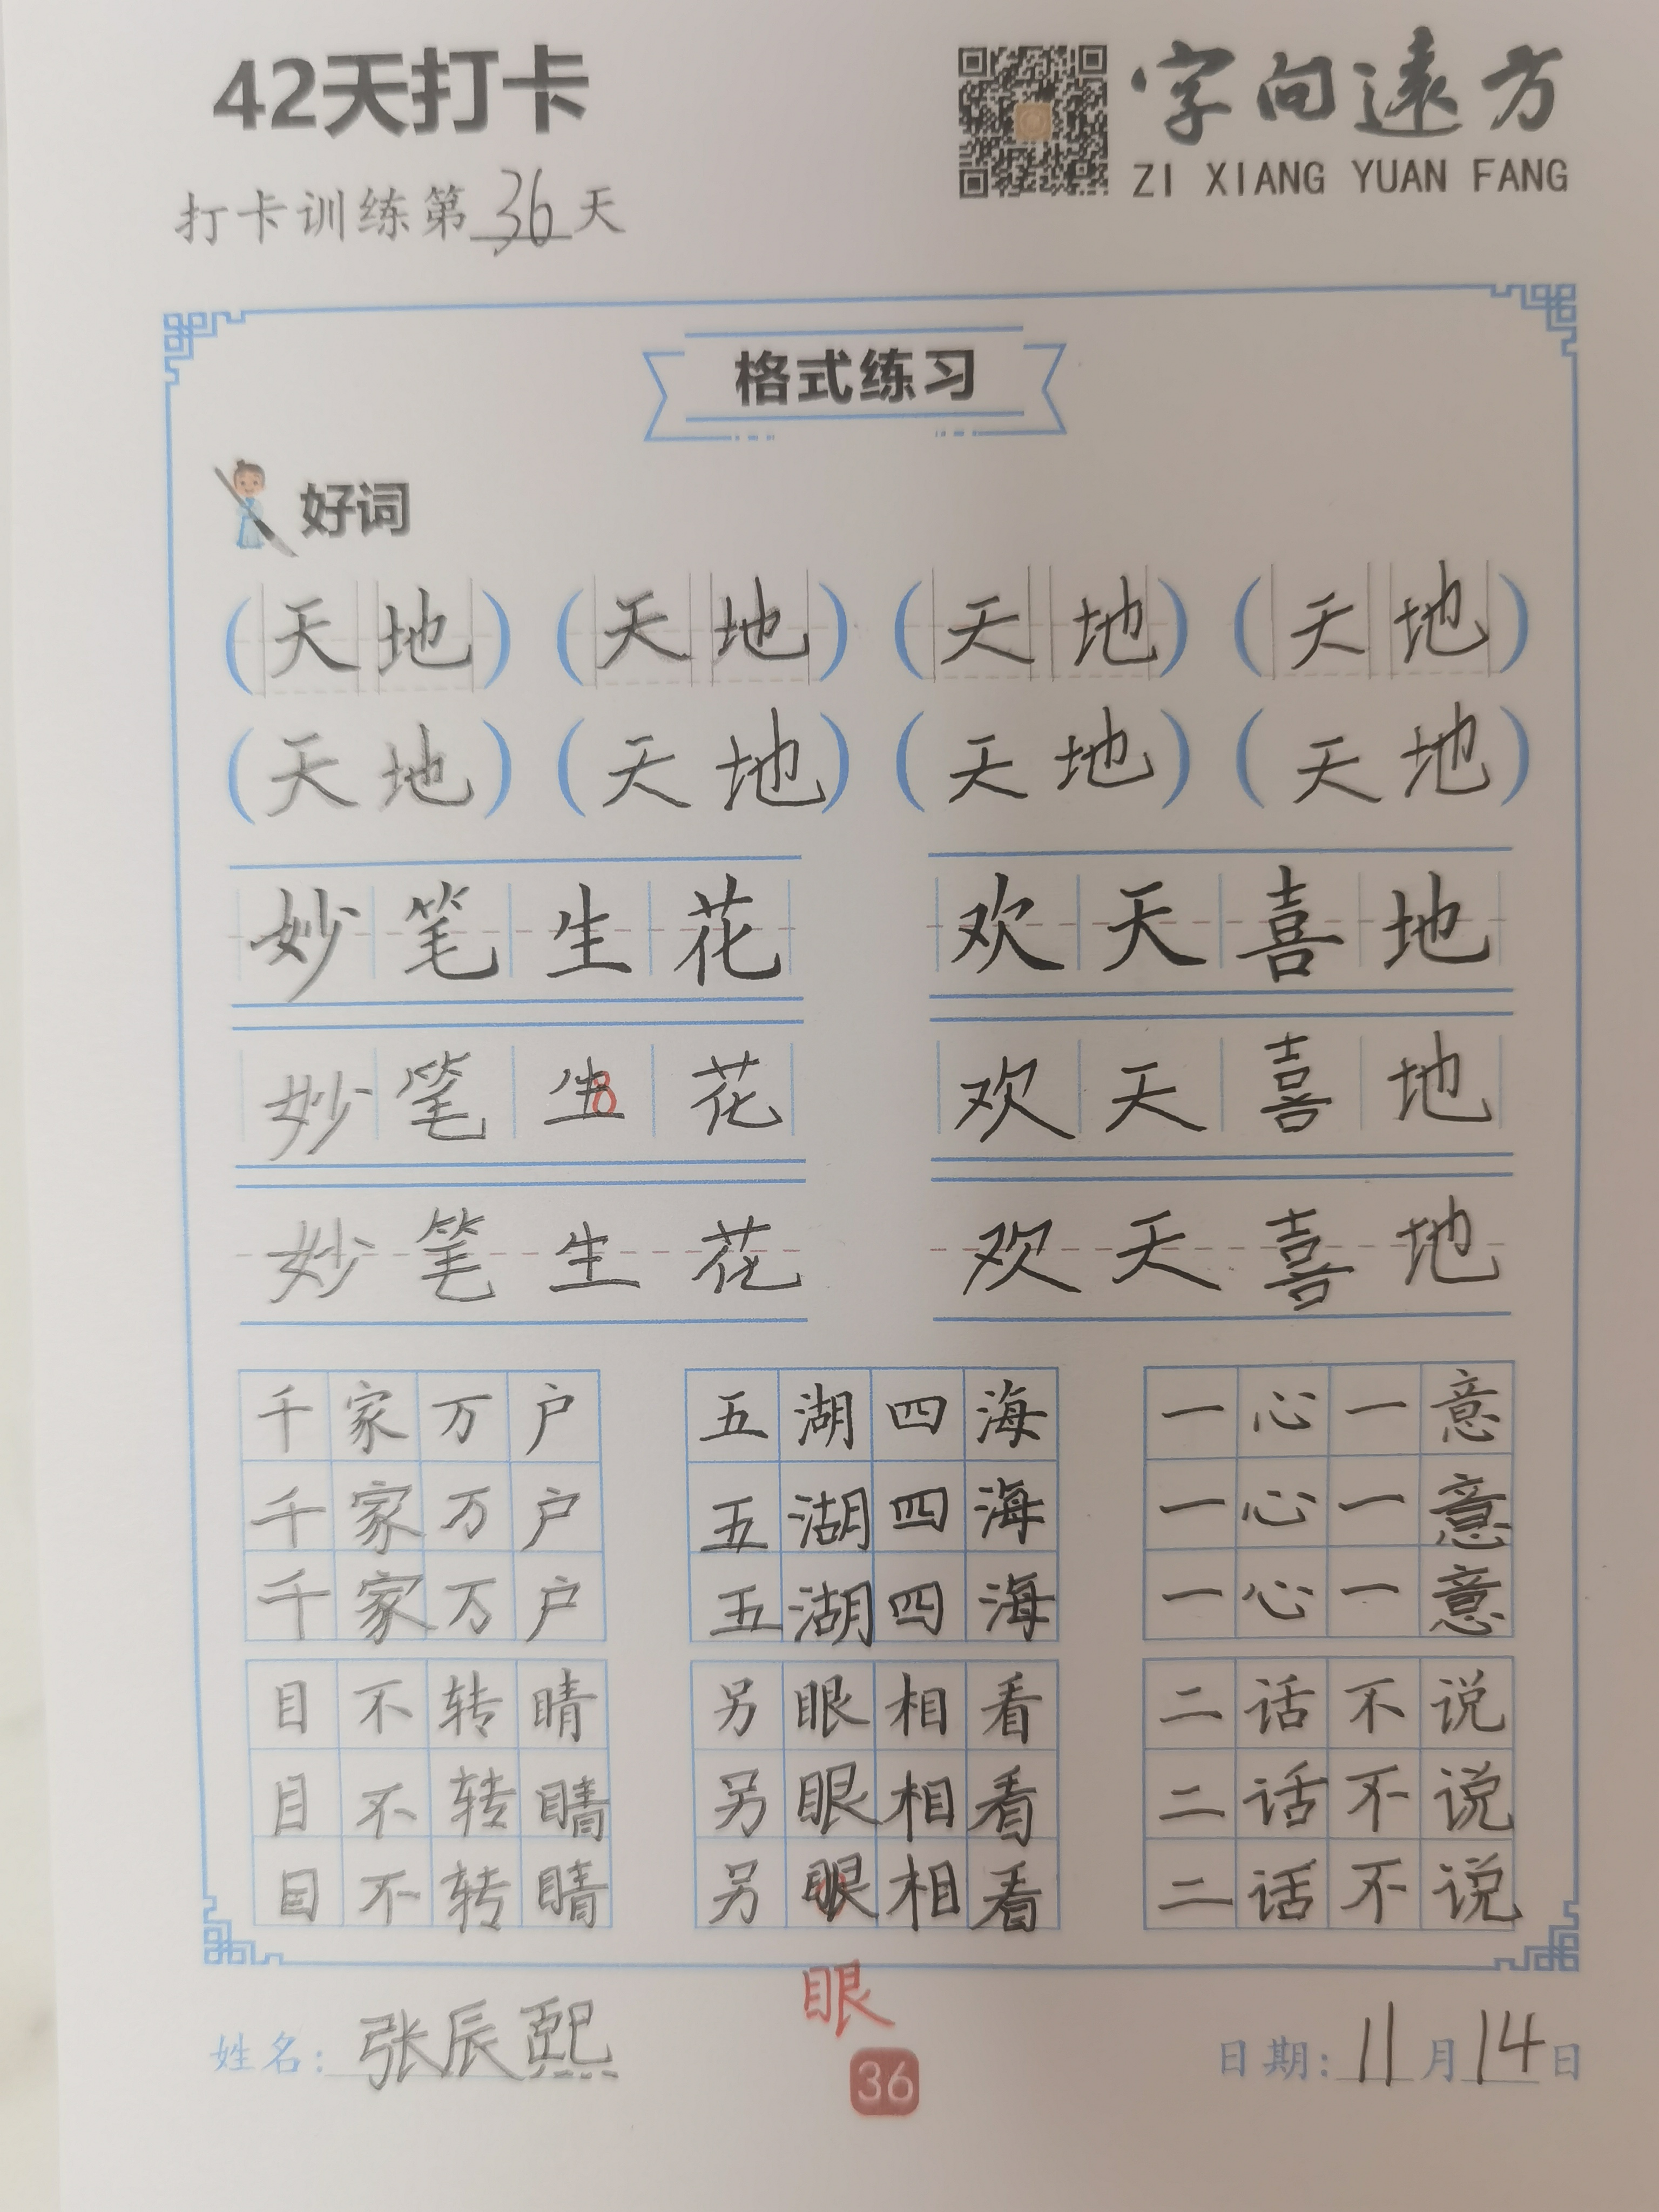 42天打卡
字向遠方
ZI XIANG YUAN FANG
打卡训练第36天
格式练习
好词
(天地) (天地) (天地) (天地)
(天地) (天地) (天地) (天地)
妙笔生花 欢天喜地
妙笔生花 欢天喜地
妙笔生花 欢天喜地
千家万户 五湖四海 一心一意
千家万户 五湖四海 一心一意
千家万户 五湖四海 一心一意
目不转睛 另眼相看 二话不说
目不转睛 另眼相看 二话不说
目不转睛 另眼相看 二话不说
眼
姓名:张辰熙 36 日期:11月14日